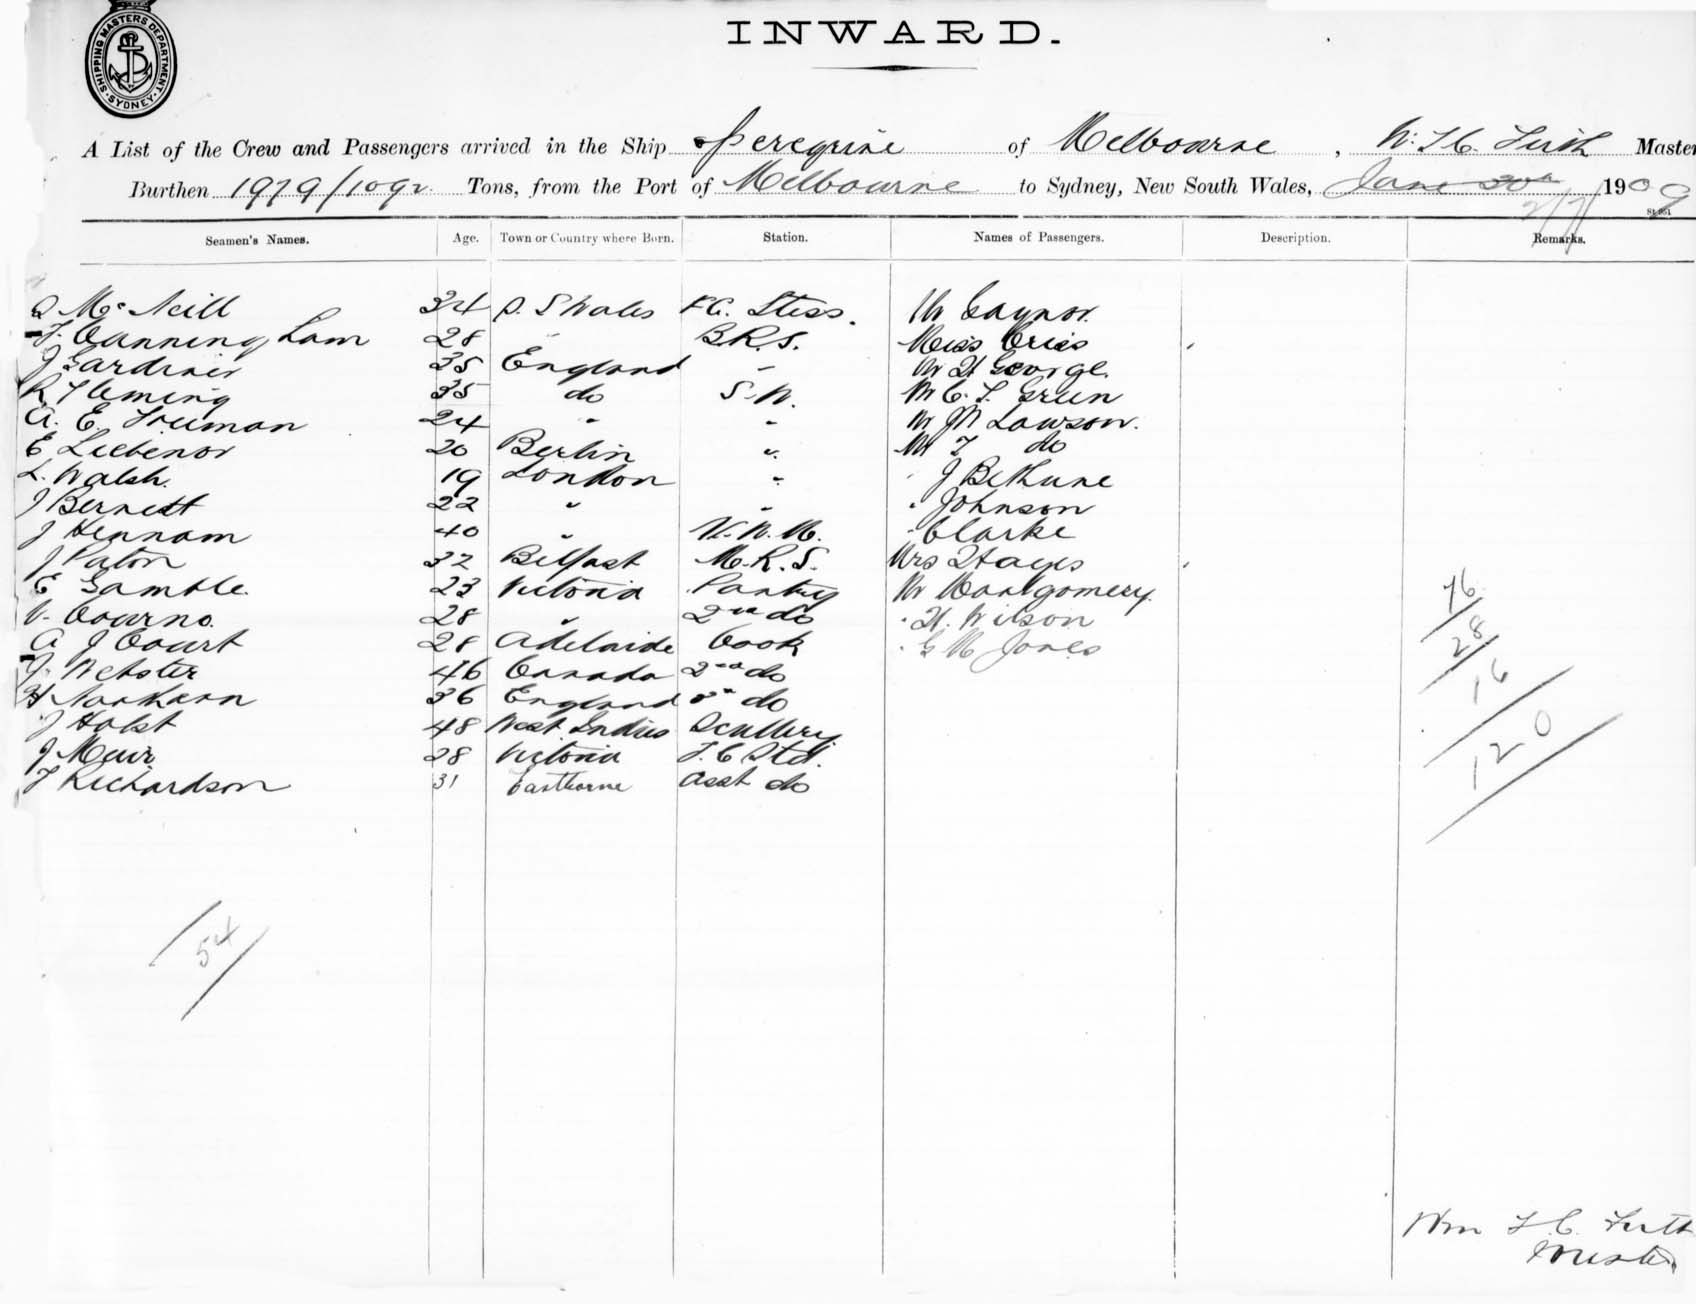 SHIPPING MASTERS DEPARTMENT SYDNEY
INWARD.
A List of the Crew and Passengers arrived in the Ship Peregrine of Melbourne , W. F. C. Firth Master
Burthen 1979/1092 Tons, from the Port of Melbourne to Sydney, New South Wales, June 30th 1909
2/7/
Seamen's Names. Age. Town or Country where Born. Station. Names of Passengers. Description. Remarks.
McNeill 34 S Wales F.C. Stess. Mr Gaynor
Cunningham 28 " B.R.S. Miss
J Gardiner 35 England " Mr H George.
R Fleming 35 do S.W. Mr C. F. Green
A. E. Freeman 24 " " Mr M Lawson.
E Liebenor 20 Berlin " Mr F do
L. Walsh. 19 London " J Bethune
J Bernett 22 " " Johnson
J Hennam 40 " Clarke
J Paton 32 Belfast M.R.S. Mrs Hayes
E Gamble. 23 Victoria Pantry Mr Montgomery.
V. Courno. 28 " 2nd do " H. Wilson
A J Court 28 Adelaide Cook " G M Jones
Webster 46 Canada 2nd do
H 36 England 3rd do
J Holst 48 West Indies Scullery
J Muir 28 Victoria F.C. Std.
F Richardson 31 Asst do
76
28
16
120
54
Wm F. C. Firth
Master